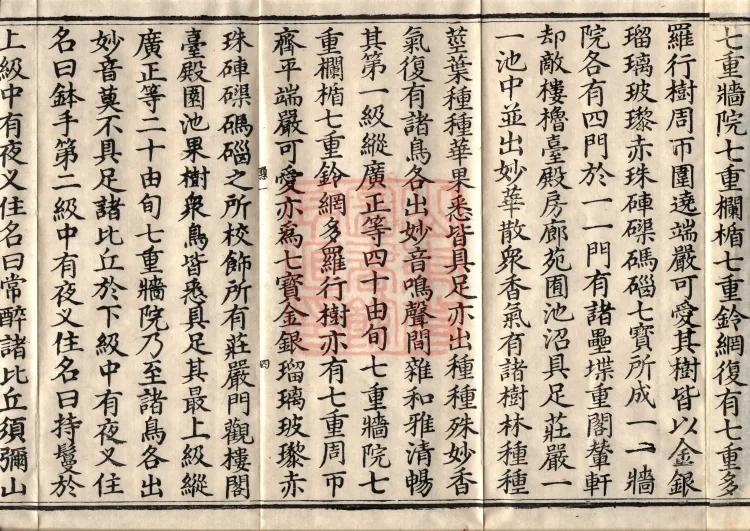 七重牆院七重欄楯七重鈴網復有七重多
羅行樹周帀圍遶端嚴可愛其樹皆以金銀
瑠璃玻瓈赤珠硨磲碼碯七寶所成一一牆
院各有四門於一一門有諸壘堞重閣輦軒
却敵樓櫓臺殿房廊苑圃池沼具足莊嚴一
一池中並出妙華散衆香氣有諸樹林種種
莖葉種種華果悉皆具足亦出種種殊妙香
氣復有諸鳥各出妙音鳴聲間雜和雅清暢
其第一級縱廣正等四十由旬七重牆院七
重欄楯七重鈴網多羅行樹亦有七重周帀
齊平端嚴可愛亦爲七寶金銀瑠璃玻瓈赤
四
珠硨磲碼碯之所校飾所有莊嚴門觀樓閣
臺殿園池果樹衆鳥皆悉具足其最上級縱
廣正等二十由旬七重牆院乃至諸鳥各出
妙音莫不具足諸比丘於下級中有夜叉住
名曰鉢手第二級中有夜叉住名曰持鬘於
上級中有夜叉住名曰常醉諸比丘須彌山